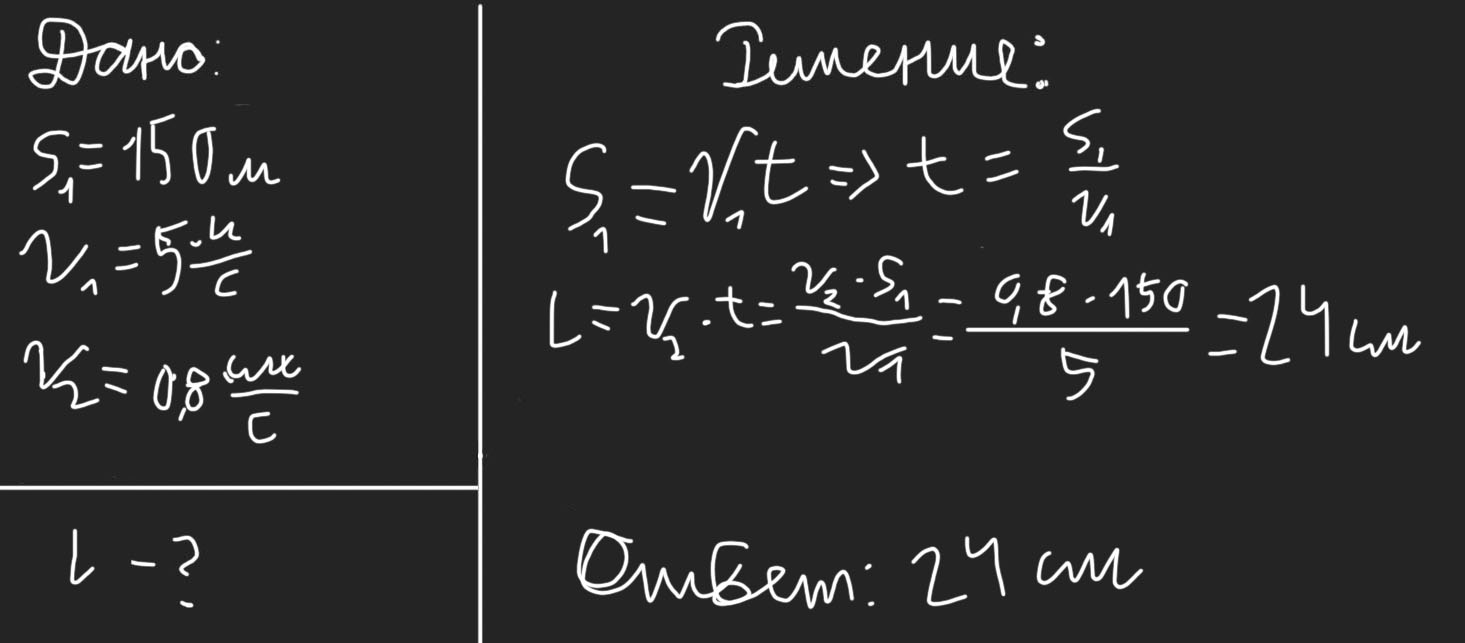 Дано:
S₁=150 м
V₁=5 м/с
V₂=0,8 см/с
L-?
Решение:
S₁=V₁t => t=S₁/V₁
L=V₂·t=V₂·S₁/V₁=0,8·150/5=24 см
Ответ: 24 см